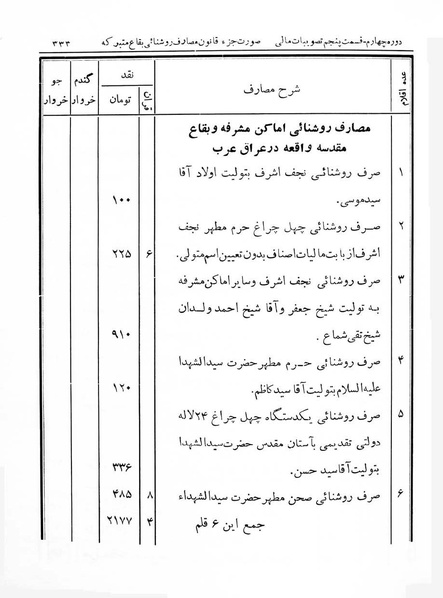 دوره چهارم، قسمت پنجم تصویبات مالی صورت جزء قانون مصارف روشنائی بقاع متبرکه ۳۳۳
عده اقلام شرح مصارف نقد گندم جو
قران تومان خروار خروار
مصارف روشنائی اماکن مشرفه و بقاع
مقدسه واقعه در عراق عرب
۱ صرف روشنائی نجف اشرف بتولیت اولاد آقا
سید موسی. ۱۰۰
۲ صرف روشنائی چهل چراغ حرم مطهر نجف
اشرف از بابت مالیات اصناف بدون تعیین اسم متولی. ۶ ۲۲۵
۳ صرف روشنائی نجف اشرف و سایر اماکن مشرفه
به تولیت شیخ جعفر و آقا شیخ احمد ولدان
شیخ تقی شماع . ۹۱۰
۴ صرف روشنائی حرم مطهر حضرت سید الشهدا
علیه السلام بتولیت آقا سید کاظم. ۱۲۰
۵ صرف روشنائی یکدستگاه چهل چراغ ۲۴ لاله
دولتی تقدیمی بآستان مقدس حضرت سید الشهدا
بتولیت آقا سید حسن. ۳۳۶
۶ صرف روشنائی صحن مطهر حضرت سید الشهداء ۸ ۴۸۵
جمع این ۶ قلم ۴ ۲۱۷۷